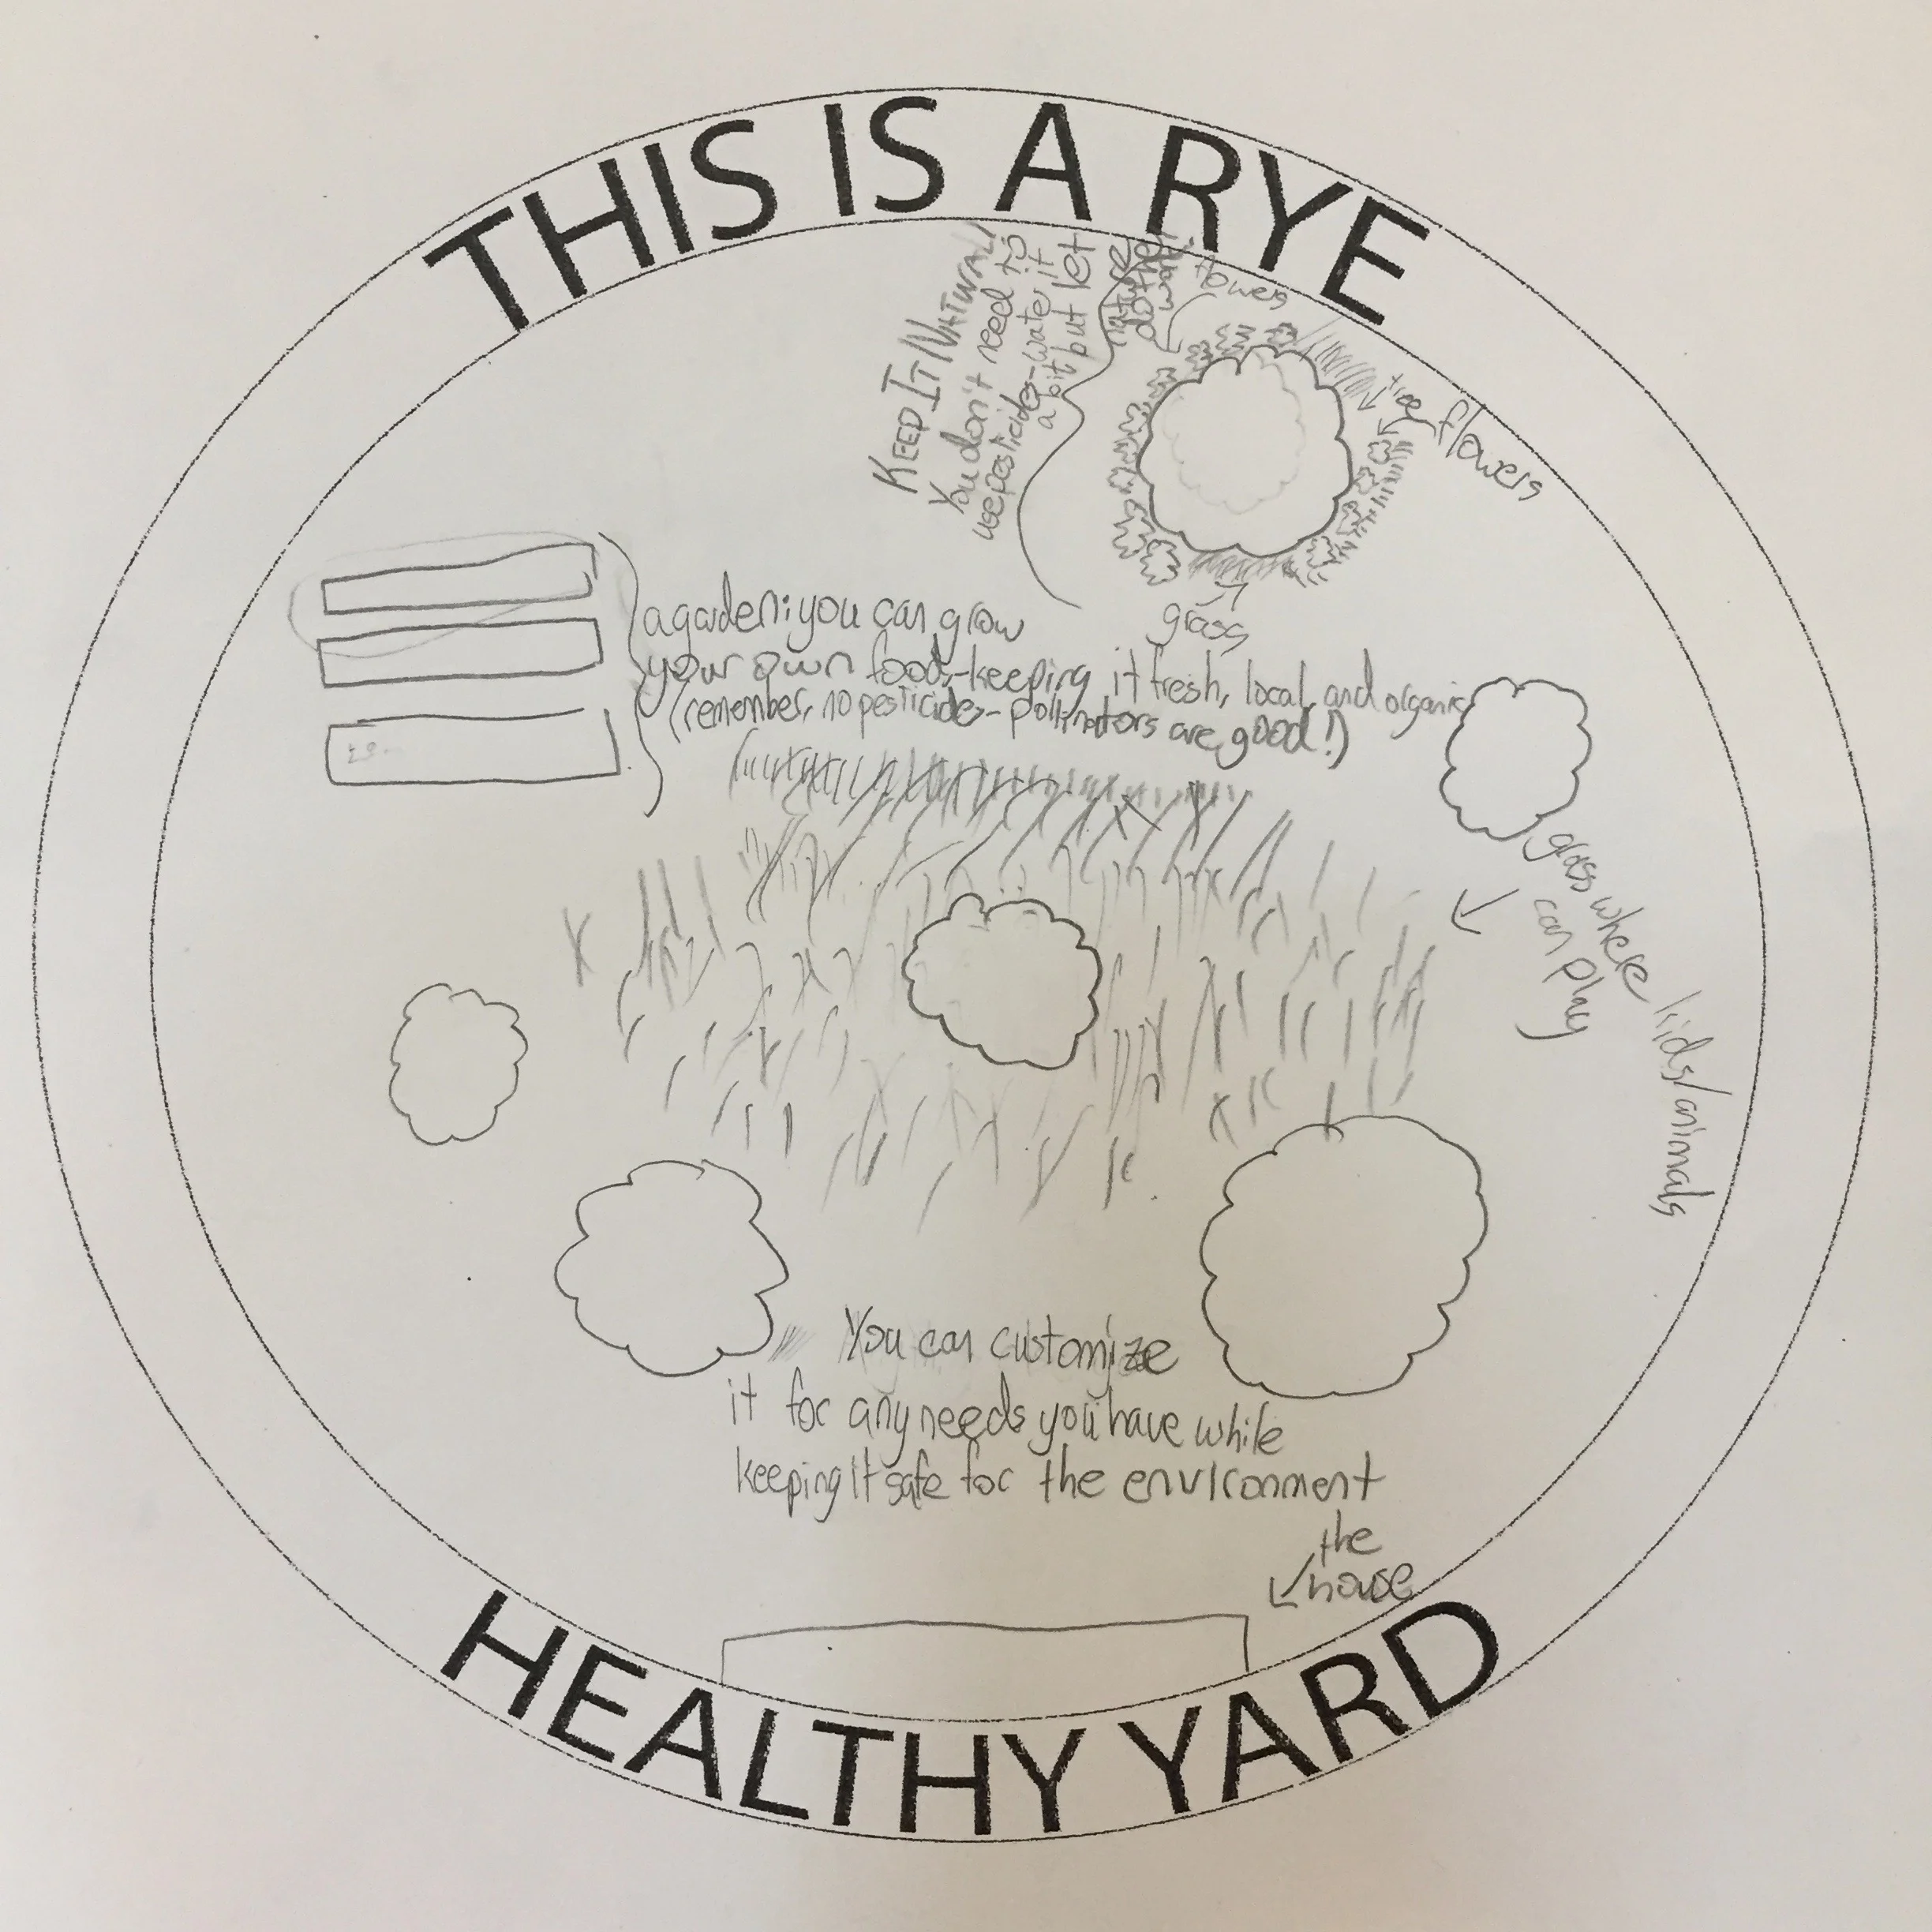 THIS IS A RYE
KEEP IT NATURAL!
You don't need to
use pesticides-water it
a bit but let
nature
do the
work!
flowers
flowers
grass
a garden: you can grow
your own food,-keeping it fresh, local, and organic
(remember, no pesticides- pollinators are good!)
grass where kids/animals
can play
You can customize
it for any needs you have while
keeping it safe for the environment
the
house
HEALTHY YARD